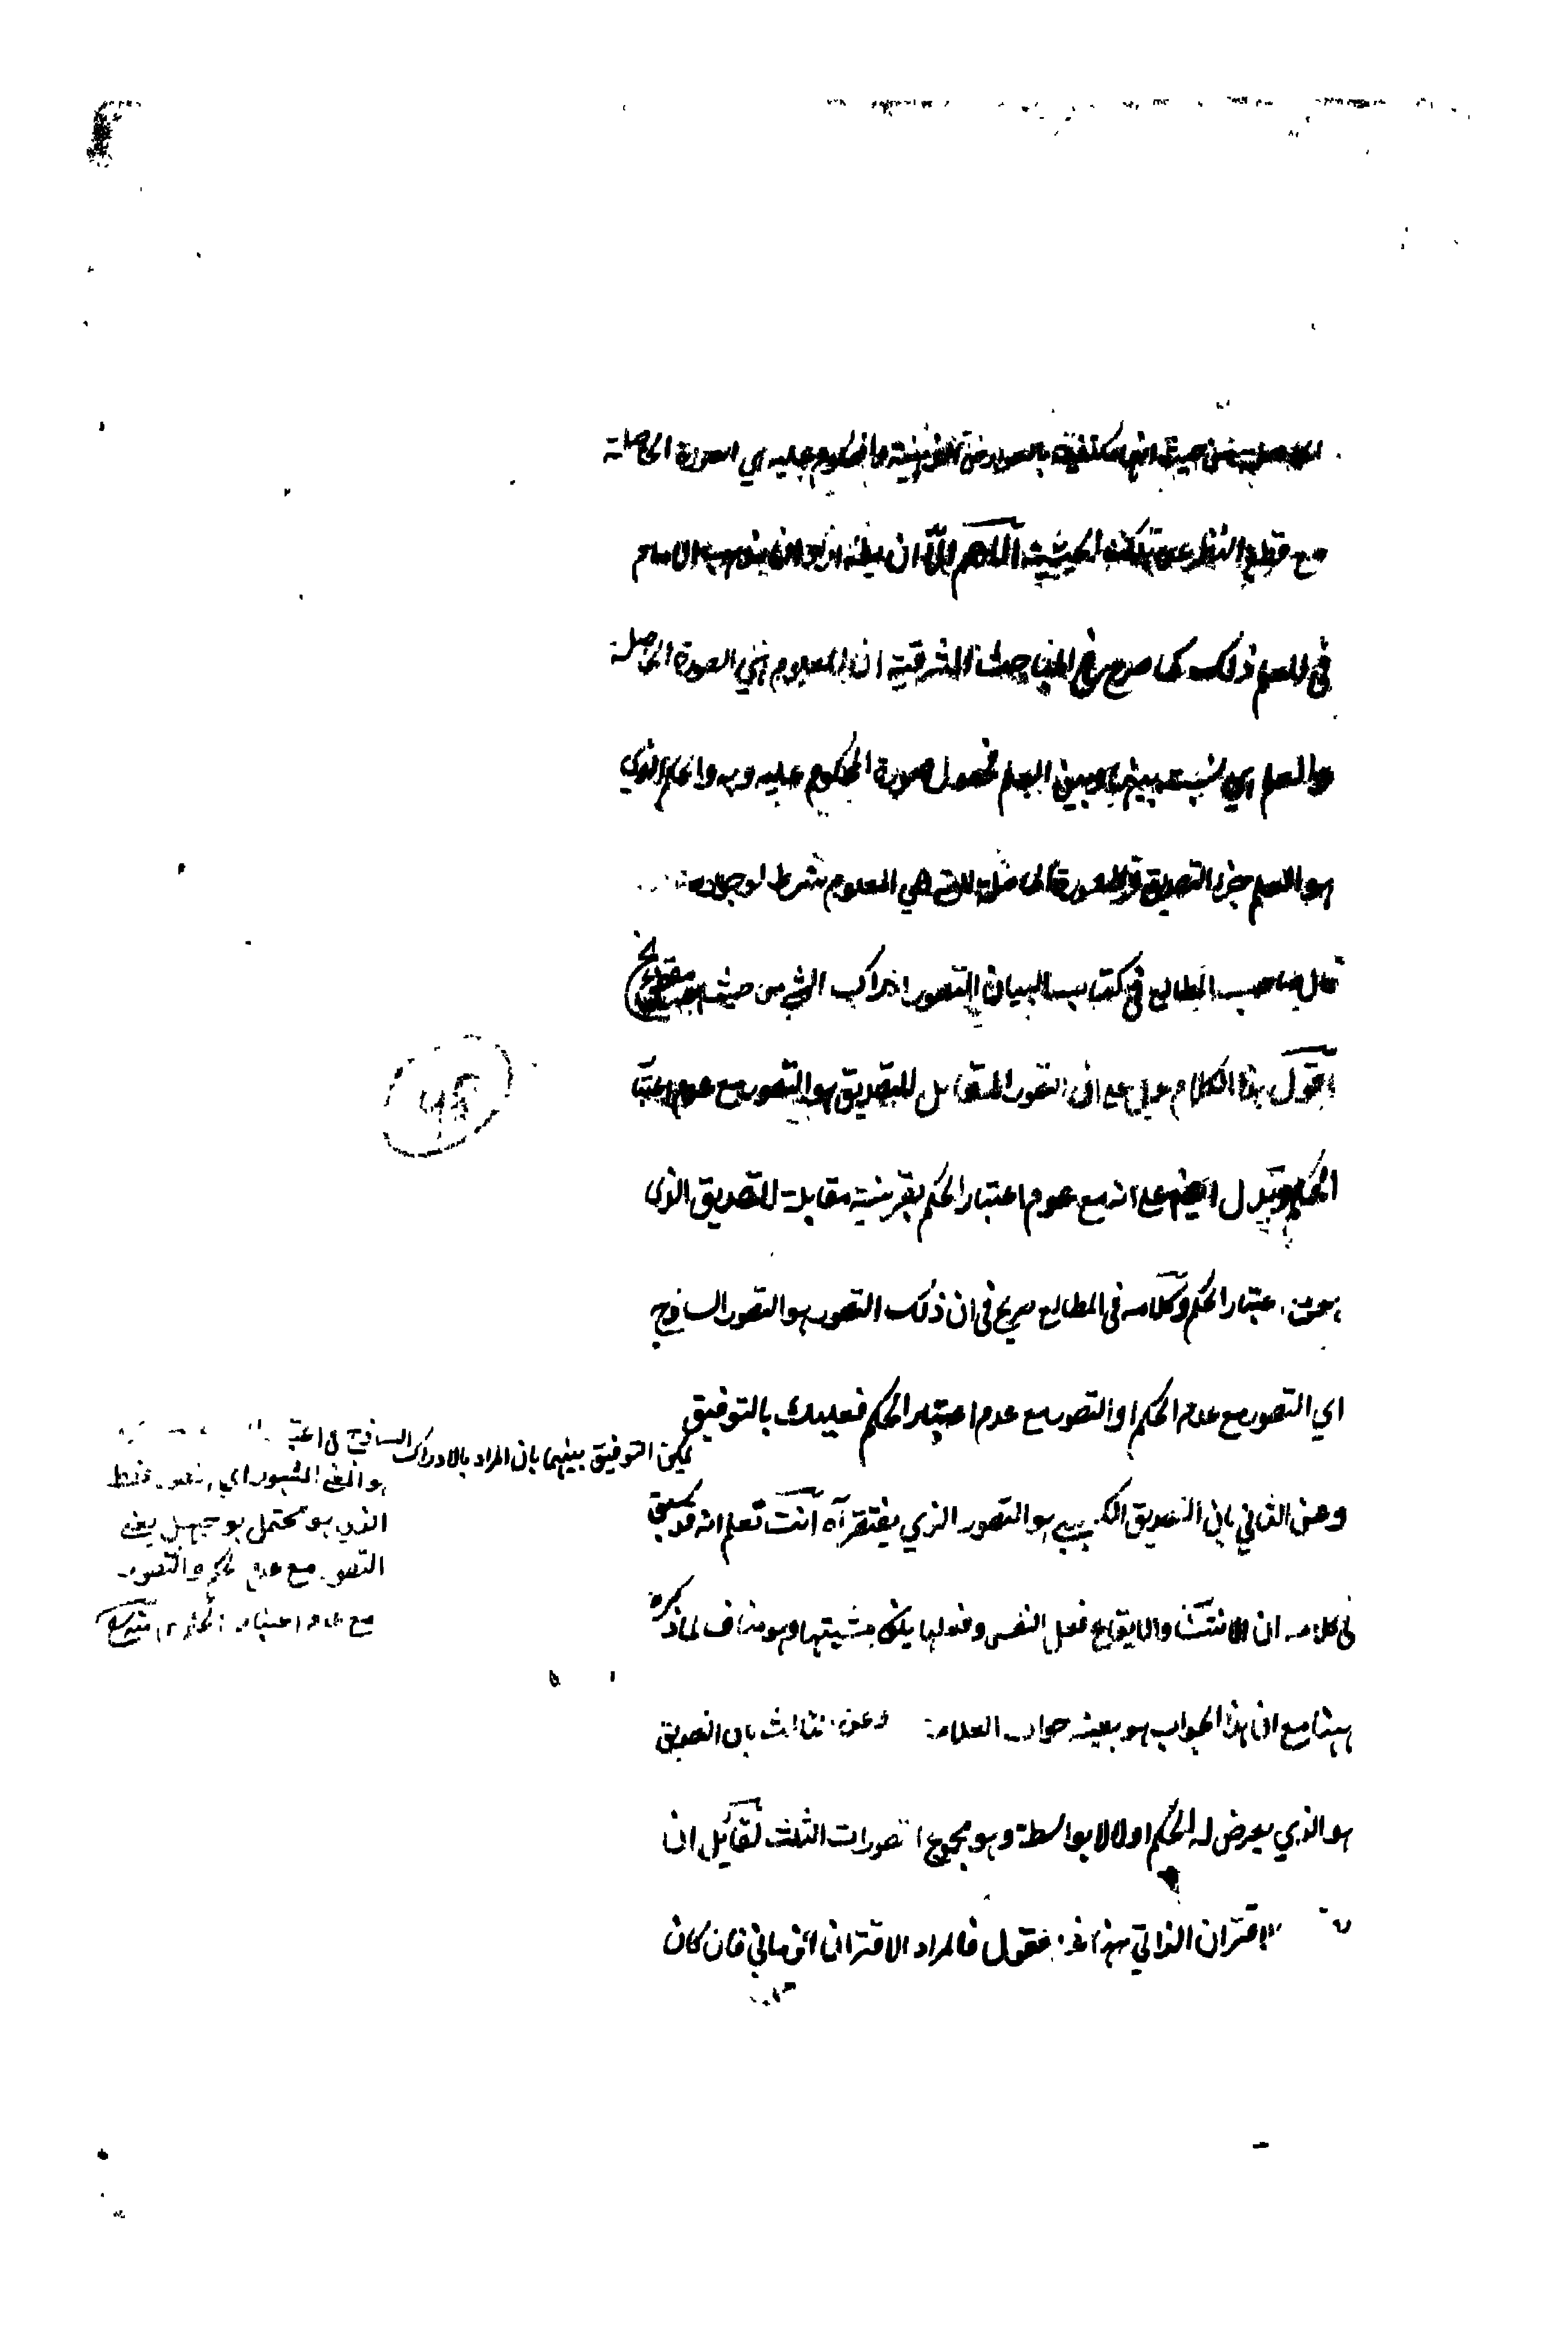 الحاصلة من حيث انها مكتنفة بالعوارض الذهنية والمحكوم عليه هي الصورة الحاصلة
مع قطع النظر عن تلك الحيثية اللهم الا ان يقال ان مذهب الامام
في العلم ذلك كما صرح في المباحث المشرقية ان المعلوم هي الصورة الحاصلة
والعلم هي نسبة بينها وبين العالم فحصول صورة المحكوم عليه وبه والحكم الذي
هو العلم جزء التصديق والصورة الحاصلة التي هي المعلوم شرط لوجوده
قال صاحب المطالع في كتاب البيان التصور ادراك الشي من حيث هو
اقول هذا الكلام يدل على ان التصور المقابل للتصديق هو التصور مع عدم اعتبا
الحكم ويدل ايضا على انه مع عدم اعتبار الحكم بقرينة مقابلة للتصديق الذي
اعتبار الحكم وكلامه في المطالع صريح في ان ذلك التصور هو التصور الساذج
اي التصور مع عدم الحكم او التصور مع عدم اعتبار الحكم فعليك بالتوفيق
وعن الثاني بان التصديق الكسبي هو التصور الذي يفتقر آه انت تعلم انه قد سبق
في كلامه ان الانتساب والايقاع فعل النفس وفعلها يكون بمشيتها وهو مناف لما ذكره
ههنا مع ان هذا الجواب هو بعينه جواب العلامة وعن الثالث بان التصديق
هو الذي يعرض له الحكم اولا لا بواسطة وهو مجموع التصورات الثلث لقائل ان
الاقتران الذاتي فنقول فالمراد الاقتران الزماني فان كان
يمكن التوفيق بينهما بان المراد بالادراك الساذج
هو المعنى المشهور اي تصور فقط
الذي هو محتمل بوجهين يعني
التصور مع عدم الحكم والتصور
مع عدم اعتبار الحكم